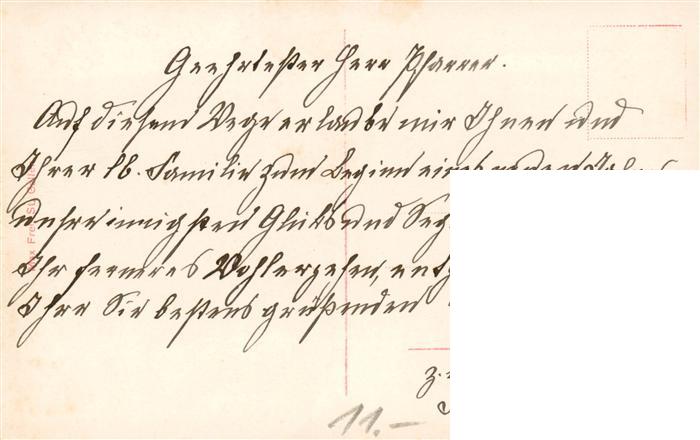 Geehrtester Herr Pfarrer.
Auf diesem Wege erlaube mir Ihnen und
Ihrer lb. Familie zum Beginn eines neuen
innigsten Glücks und
Ihr ferneres Wohlergehen,
Ihre Sie bestens grüßenden
z.
11.-